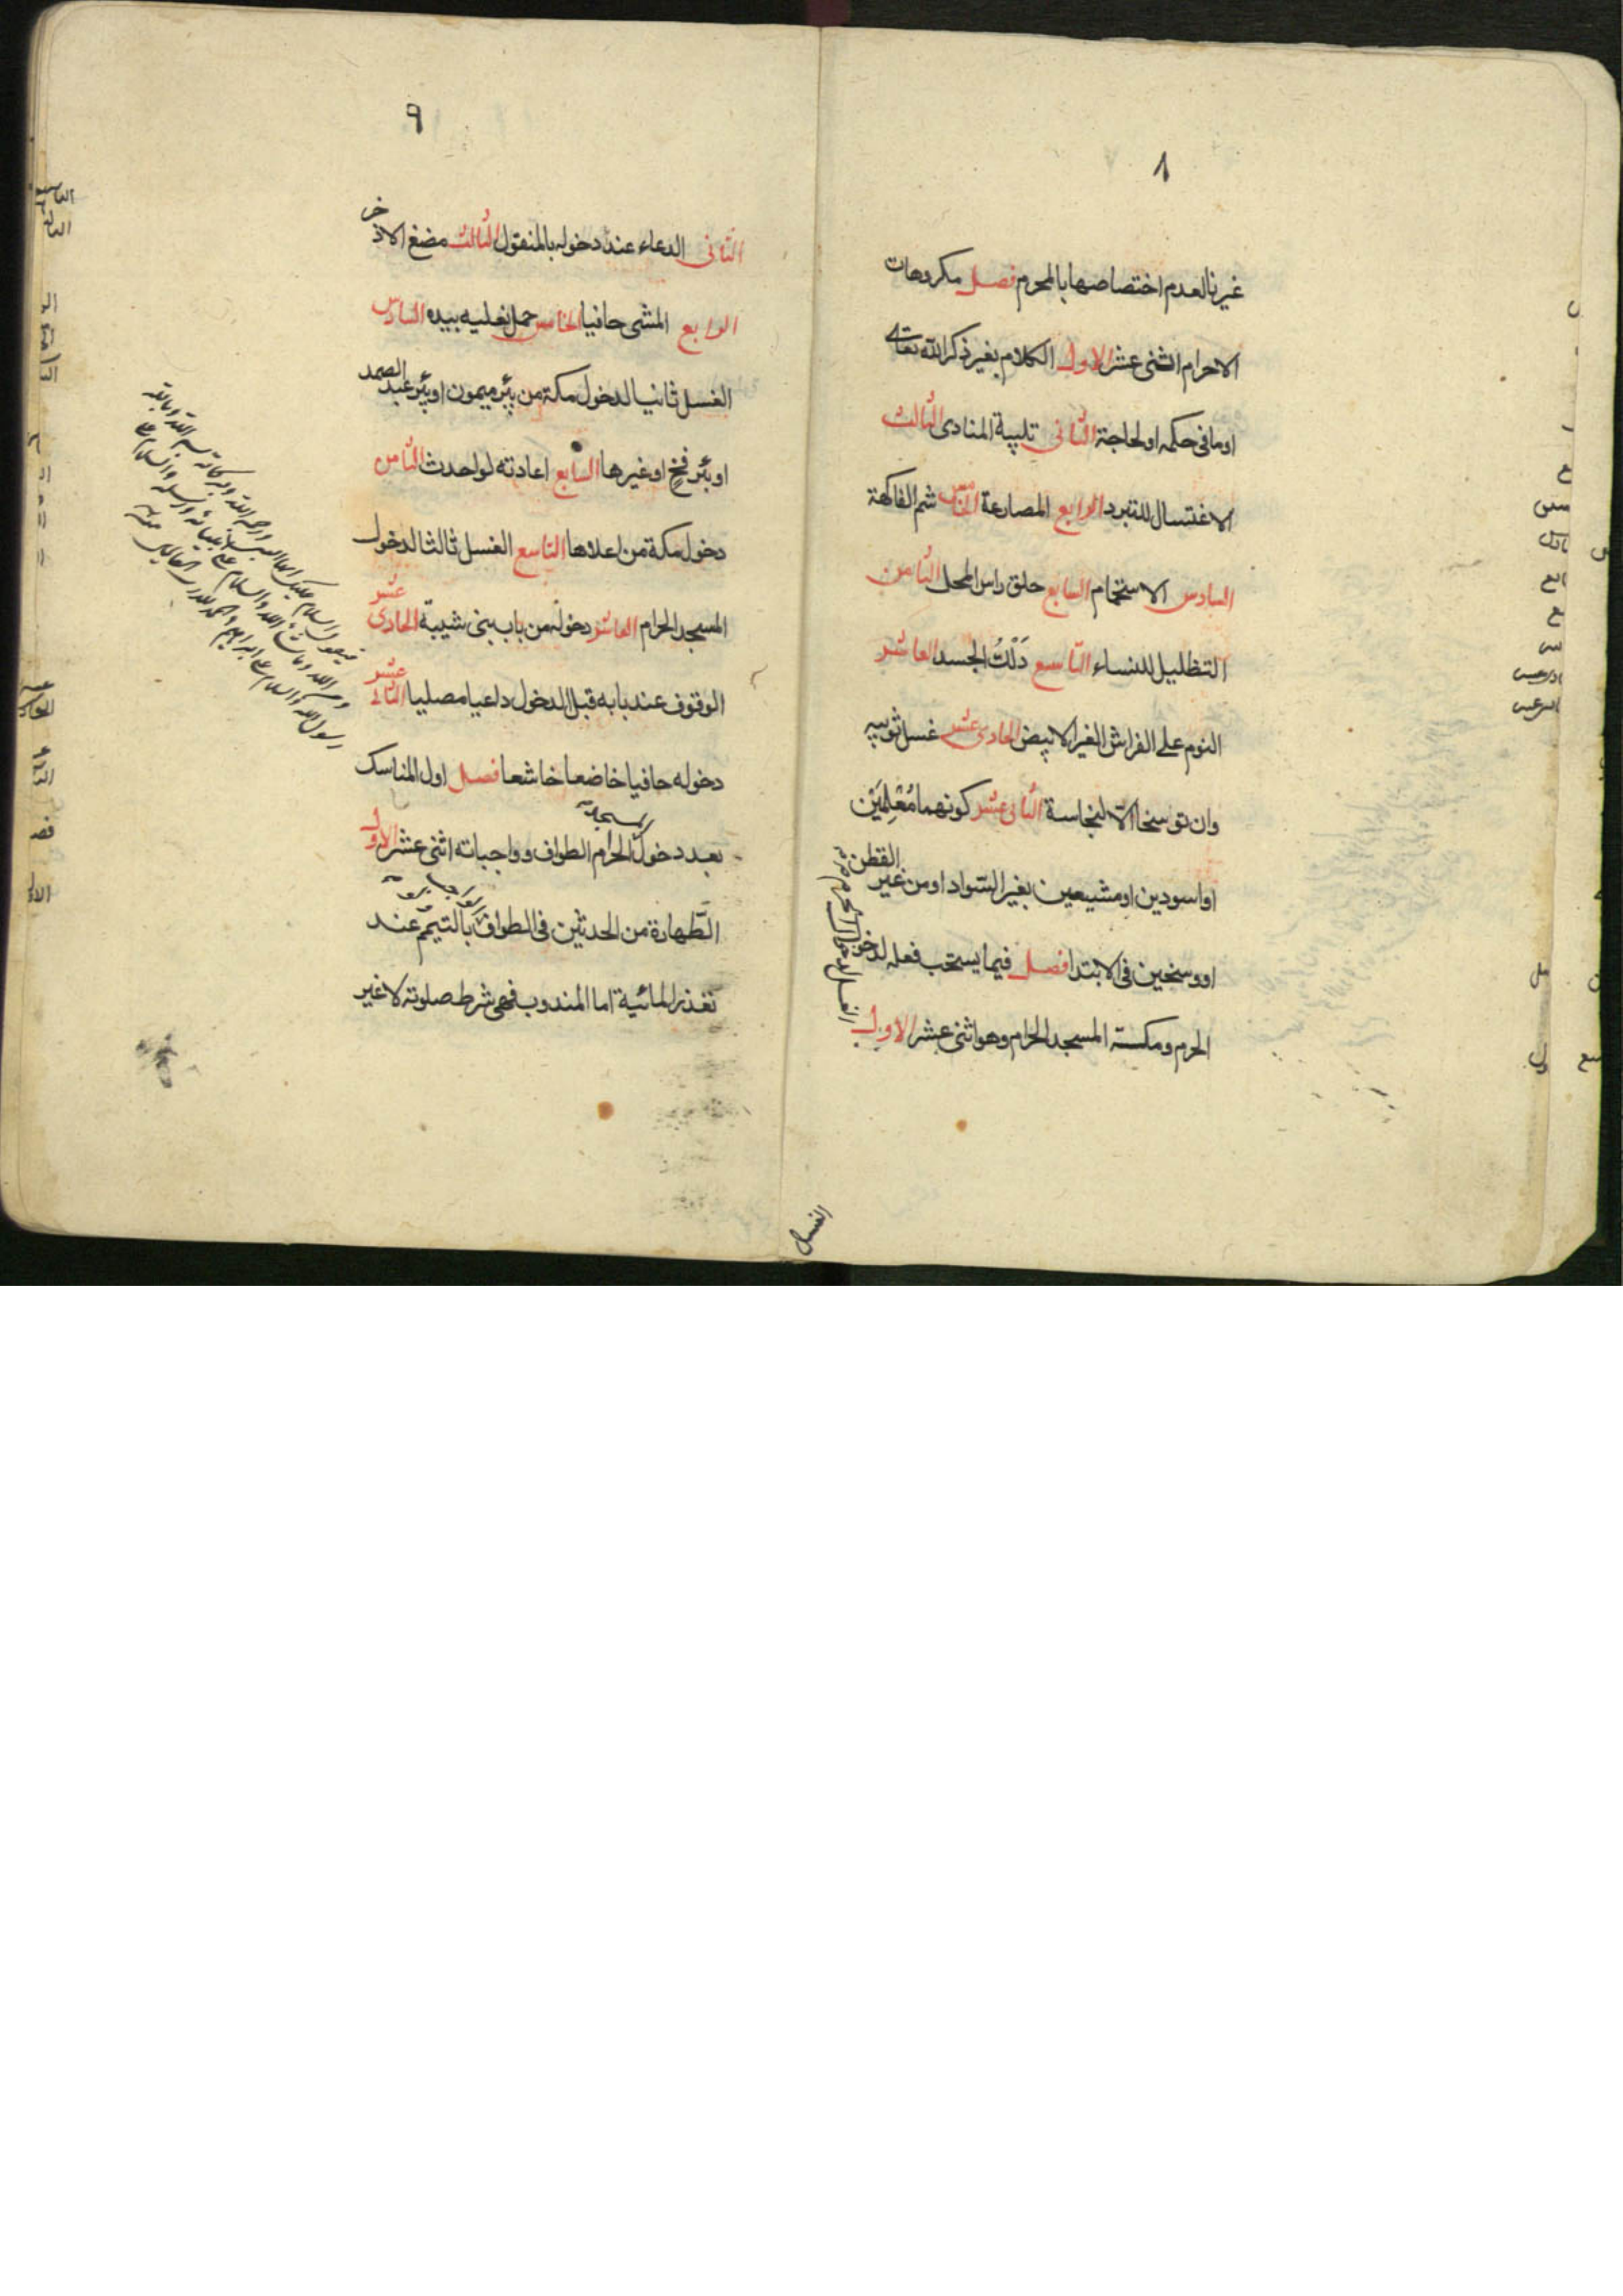 ٨
غيرنا لعدم اختصاصها بالمحرم فصل مكروهات
الاحرام اثنى عشر الاول الكلام بغير ذكر الله تعالى
او ما فى حكمه او لحاجة الثانى تلبية المنادى الثالث
الاغتسال للتبرد الرابع المصارعة الخامس شم الفاكهة
السادس الاستحمام السابع حلق راس المحل الثامن
التظليل للنساء التاسع دَلْكُ الجسد العاشر
النوم على الفراش الغير الابيض الحادى عشر غسل ثوبيه
وان توسخا الّا لنجاسة الثانى عشر كونهما مُعْلمَيْن
او اسودين او مشبعين بغير السواد او من غير القطن
او وسخين فى الابتدا فصل فيما يستحب فعله لدخول
الحرم ومكة والمسجد الحرام وهو اثنى عشر الاول
الغسل
٩
الثانى الدعاء عند دخوله بالمنقول الثالث مضغ الاذخر
الرابع المشى حافيا الخامس حمل نعليه بيده السادس
الغسل ثانيا لدخول مكة من بئر ميمون او بئر عبد الصمد
او بئر فخٍ او غيرها السابع اعادته لو احدث الثامن
دخول مكة من اعلاها التاسع الغسل ثالثا لدخول
المسجد الحرام العاشر دخوله من باب بنى شيبة الحادى عشر
الوقوف عند بابه قبل الدخول داعيا مصليا الثانى عشر
دخوله حافيا خاضعا خاشعا فصل اول المناسك
بعد دخول المسجد الحرام الطواف وواجباته اثنى عشر الاول
الطّهارة من الحدثين فى الطواف الواجب ولو بالتيمّم عند
تعذر المائية اما المندوب فهى شرط صلوته لا غير